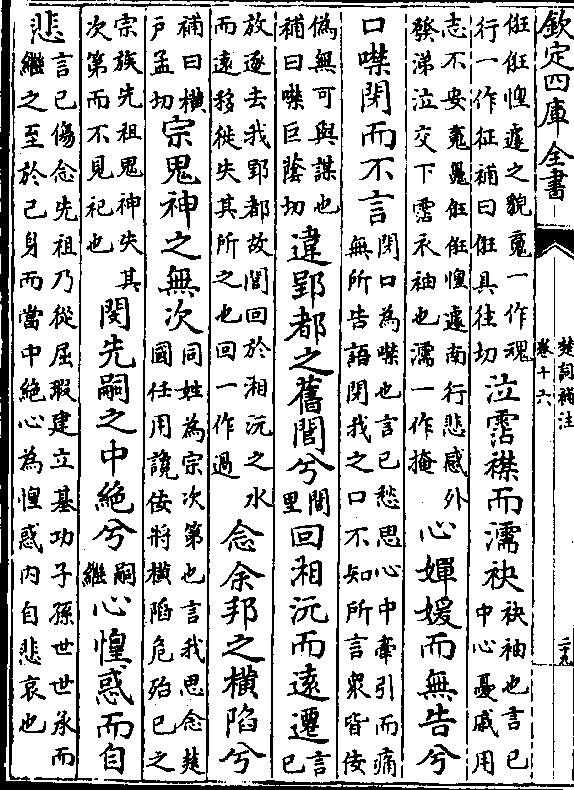 欽定四庫全書
楚詞補注
卷十六
二十九
俇俇惶遽之貌䰟一作魂
行一作征補曰俇具往切
泣霑襟而濡袂
袂袖也言已
中心憂戚用
志不安䰟䰟俇俇惶遽南行悲感外
發涕泣交下霑衣袖也濡一作掩
心嬋媛而無告兮
口噤閉而不言
閉口為噤也言已愁思心中牽引而痛
無所告語閉我之口不知所言衆皆佞
偽無可與謀也
補曰噤巨蔭切
違郢都之舊閭兮
閭
里
回湘沅而遠遷
言
已
放逐去我郢都故閭回於湘沅之水
而遠移徙失其所之也回一作過
念余邦之横陷兮
補曰横
戸孟切
宗鬼神之無次
同姓為宗次第也言我思念楚
國任用讒佞將横陷危殆已之
宗族先祖鬼神失其
次第而不見祀也
閔先嗣之中絶兮
嗣
繼
心惶惑而自
悲
言已傷念先祖乃從屈瑕建立基功子孫世世承而
繼之至於已身而當中絶心為惶惑内自悲哀也